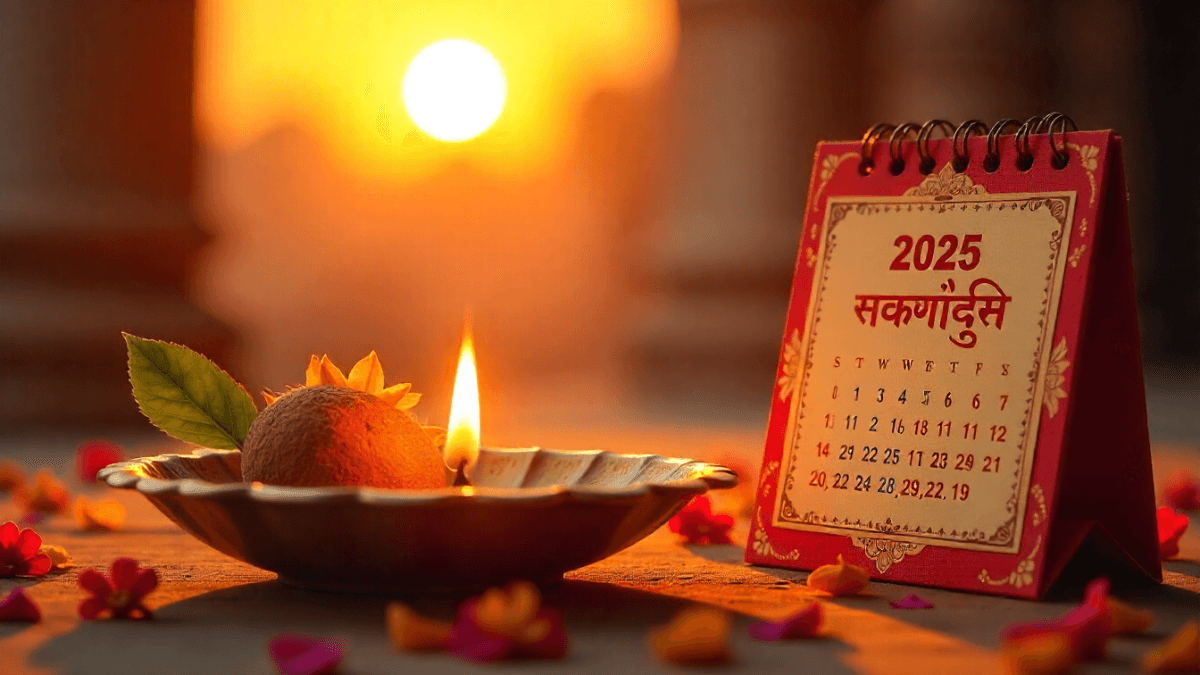 2025
सकर्णांदुसि
S T W W F T F S
0 1 3 4 5 6 6 7
13 11 2 16 18 11 11 12
14 29 22 25 17 28 29 21
20, 22 24 28, 29, 22. 19